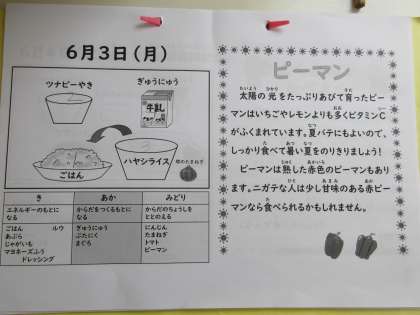 6月3日(月)
ツナピーやき
ぎゅうにゅう
牛乳
ごはん
ハヤシライス
畑のたまねぎ
き
あか
みどり
エネルギーのもとに
なる
からだをつくるもとに
なる
からだのちょうしを
ととのえる
ごはん ルウ
あぶら
じゃがいも
マヨネーズふう
ドレッシング
ぎゅうにゅう
ぶたにく
まぐろ
にんじん
たまねぎ
トマト
ピーマン
ピーマン
太陽の光をたっぷりあびて育ったピー
マンはいちごやレモンよりも多くビタミンC
がふくまれています。夏バテにもよいので、
しっかり食べて暑い夏をのりきりましょう!
ピーマンは熟した赤色のピーマンもあり
ます。ニガテな人は少し甘味のある赤ピー
マンなら食べられるかもしれません。